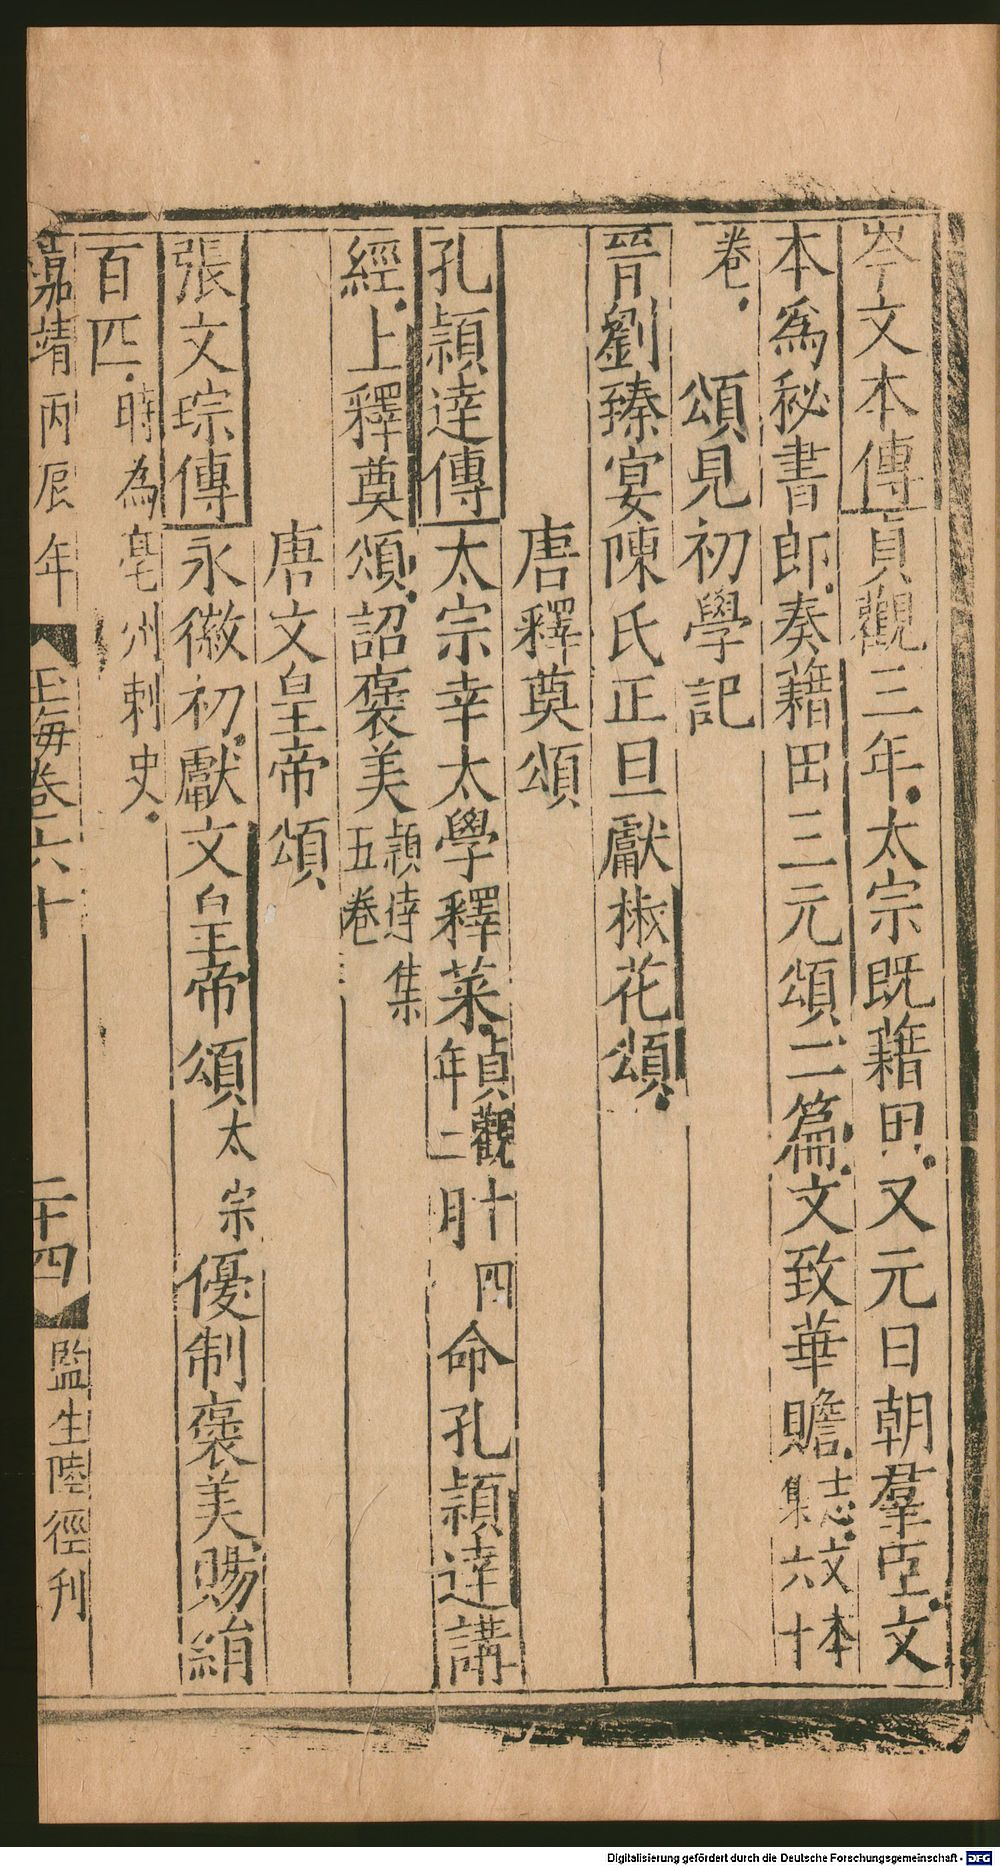 岑文本傳貞觀三年太宗既藉田又元日朝羣臣文
本為秘書郎奏藉田三元頌二篇文致華贍志文本集六十
卷　頌見初學記
晉劉臻宴陳氏正旦獻椒花頌
唐釋奠頌
孔頴達傳太宗幸太學釋菜貞觀十四年二月命孔頴達講
經上釋奠頌詔褒美頴達集五卷
唐文皇帝頌
張文琮傳永徽初獻文皇帝頌太宗優制褒美賜絹
百匹時為亳州刺史
嘉靖丙辰年　玉海卷六十　二十四　監生陸徑刋
Digitalisierung gefördert durch die Deutsche Forschungsgemeinschaft - DFG